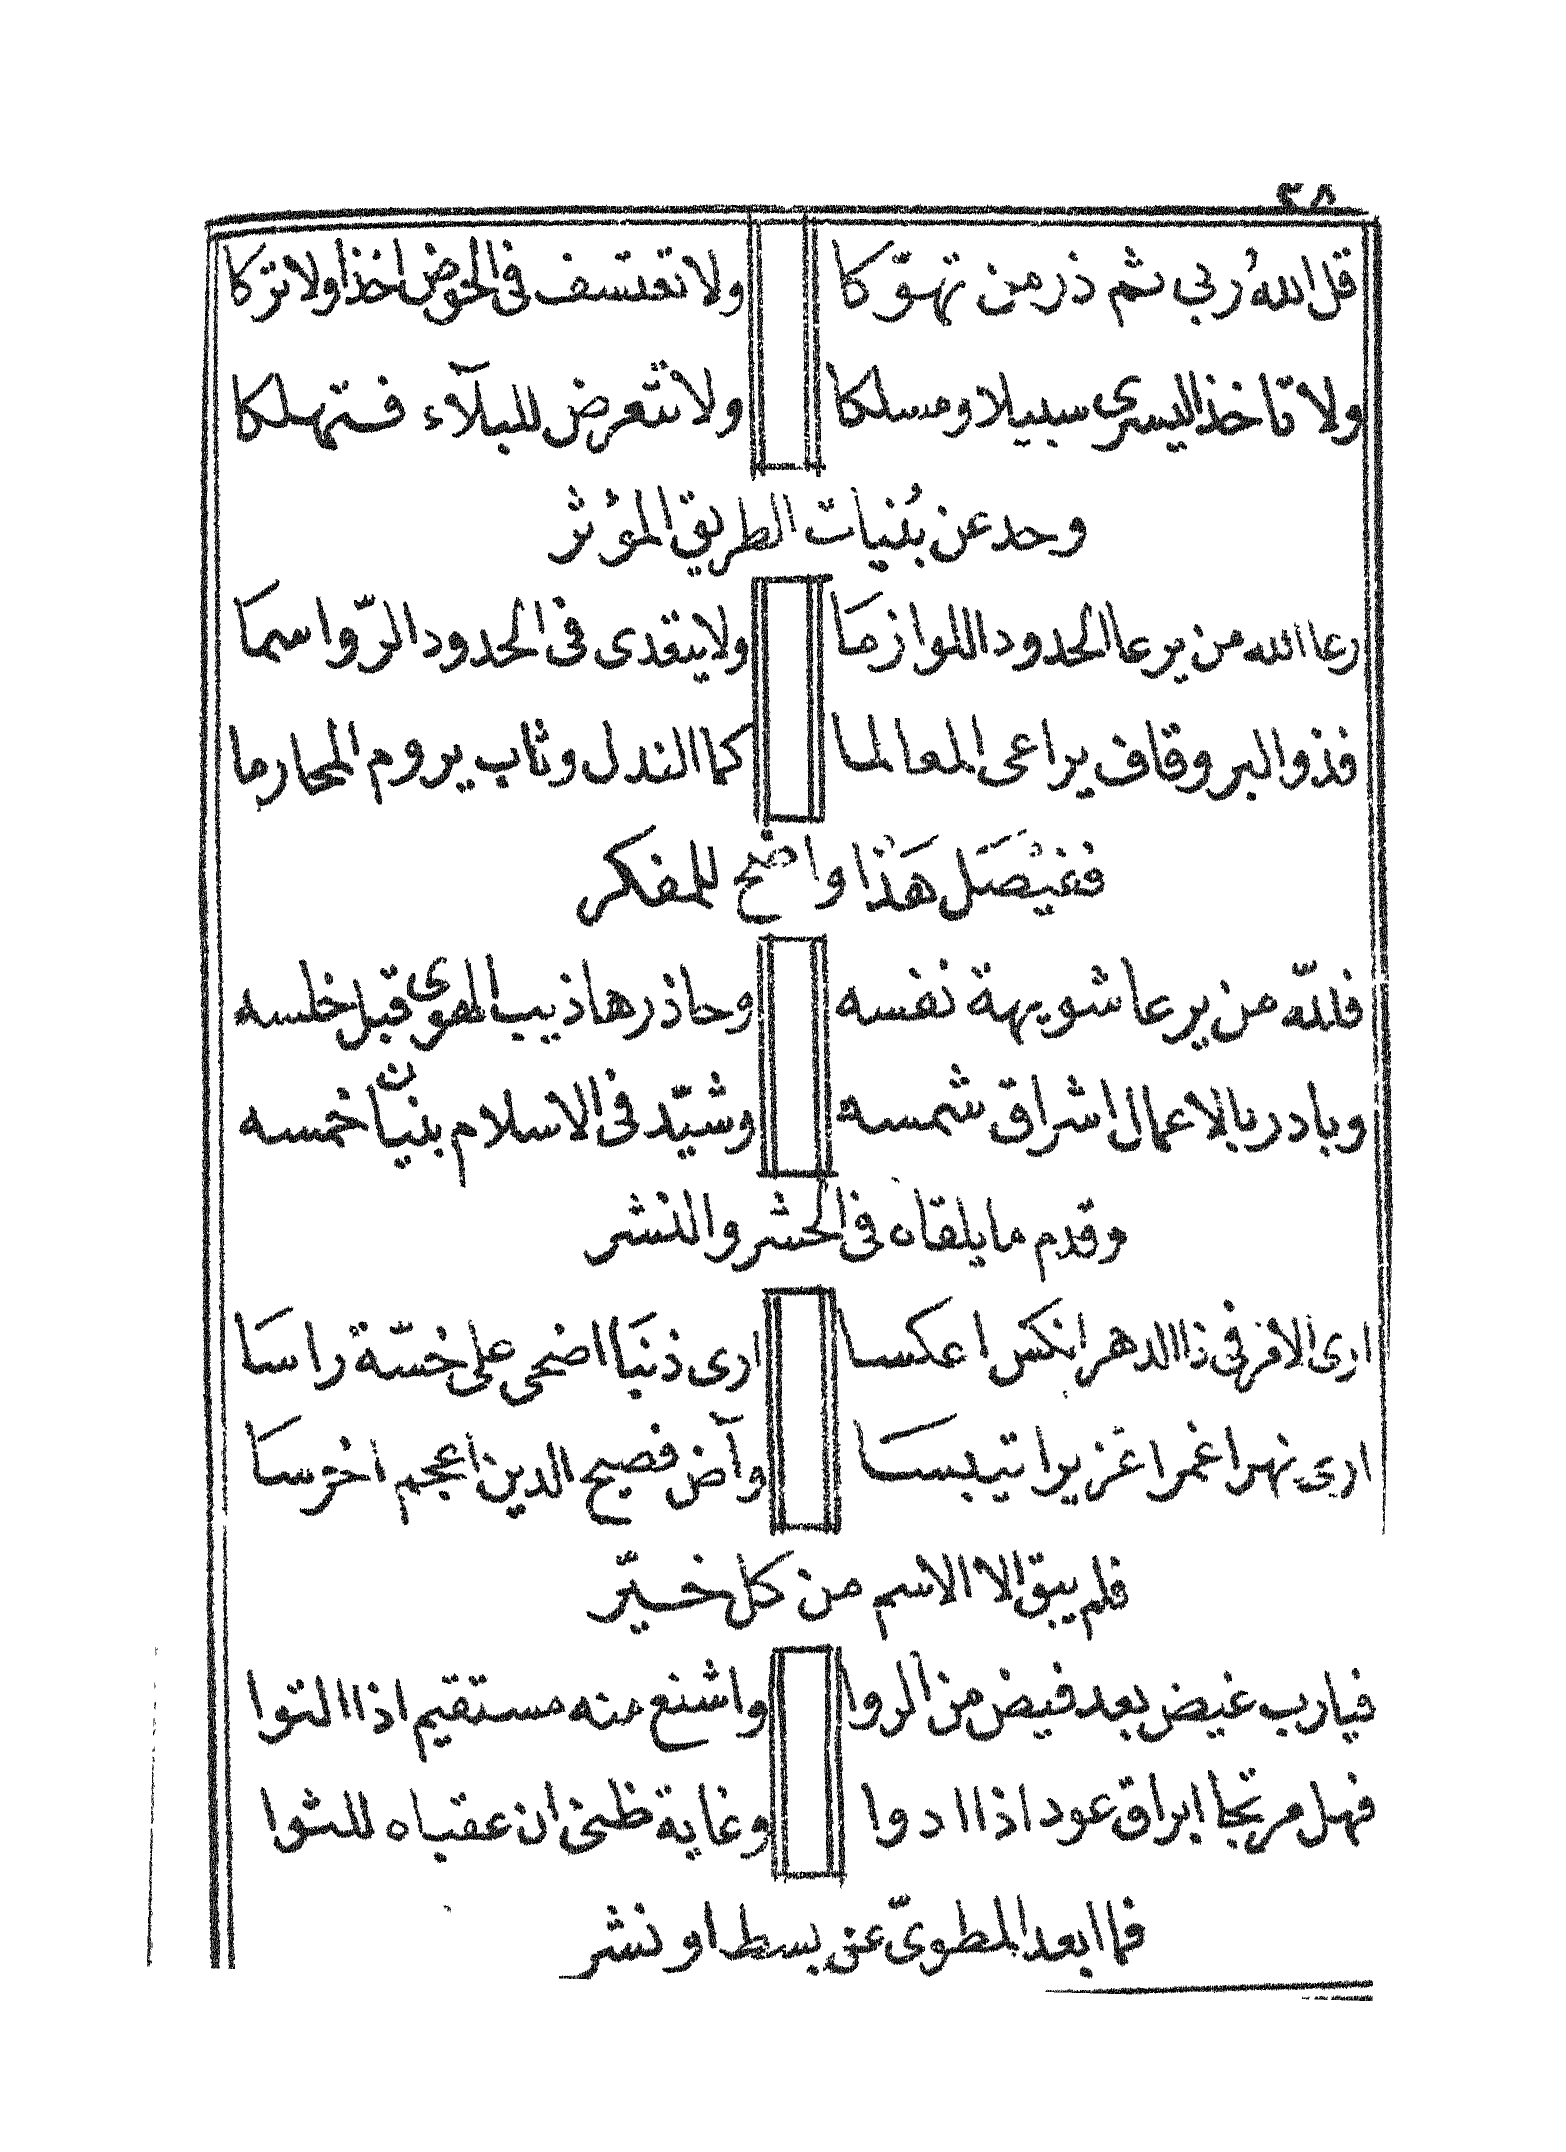 ٣٨
قل الله ربي ثم ذر من تهوّكا ولا تعتسف فى الخوض اخذا ولا تركا
ولا تاخذ اليسرى سبيلا ومسلكا ولا تتعرض للبلآء فتهلكا
وحد عن بُنيات الطريق المؤثر
رعا الله من يرعا الحدود اللوازما ولا يتعدى فى الحدود الرّواسما
فذو البر وقاف يراعى المعالما كما الندل وثاب يروم المحارما
ففيصل هذا واضح للمفكر
فللّه من يرعا شويهة نفسه وحاذرها ذيب الهوى قبل خلسه
وبادر بالاعمال اشراق شمسه وشيّد فى الاسلام بنيان خمسه
وقدم ما يلقاه فى الحشر والنشر
ارى الامر فى ذا الدهر انكس اعكسا ارى ذنبا اضحى على خسّة راسا
ارى نهرا غمرا غزيرا تيبسا وآض فصيح الدين اعجم اخرسا
فلم يبق الا الاسم من كل خيّر
فيارب غيض بعد فيض من الروا واشنع منه مستقيم اذا التوا
فهل مرتجا ابراق عود اذا ادوا وغاية ظنى ان عقباه للثوا
فما ابعد المطويّ عن بسط او نشر